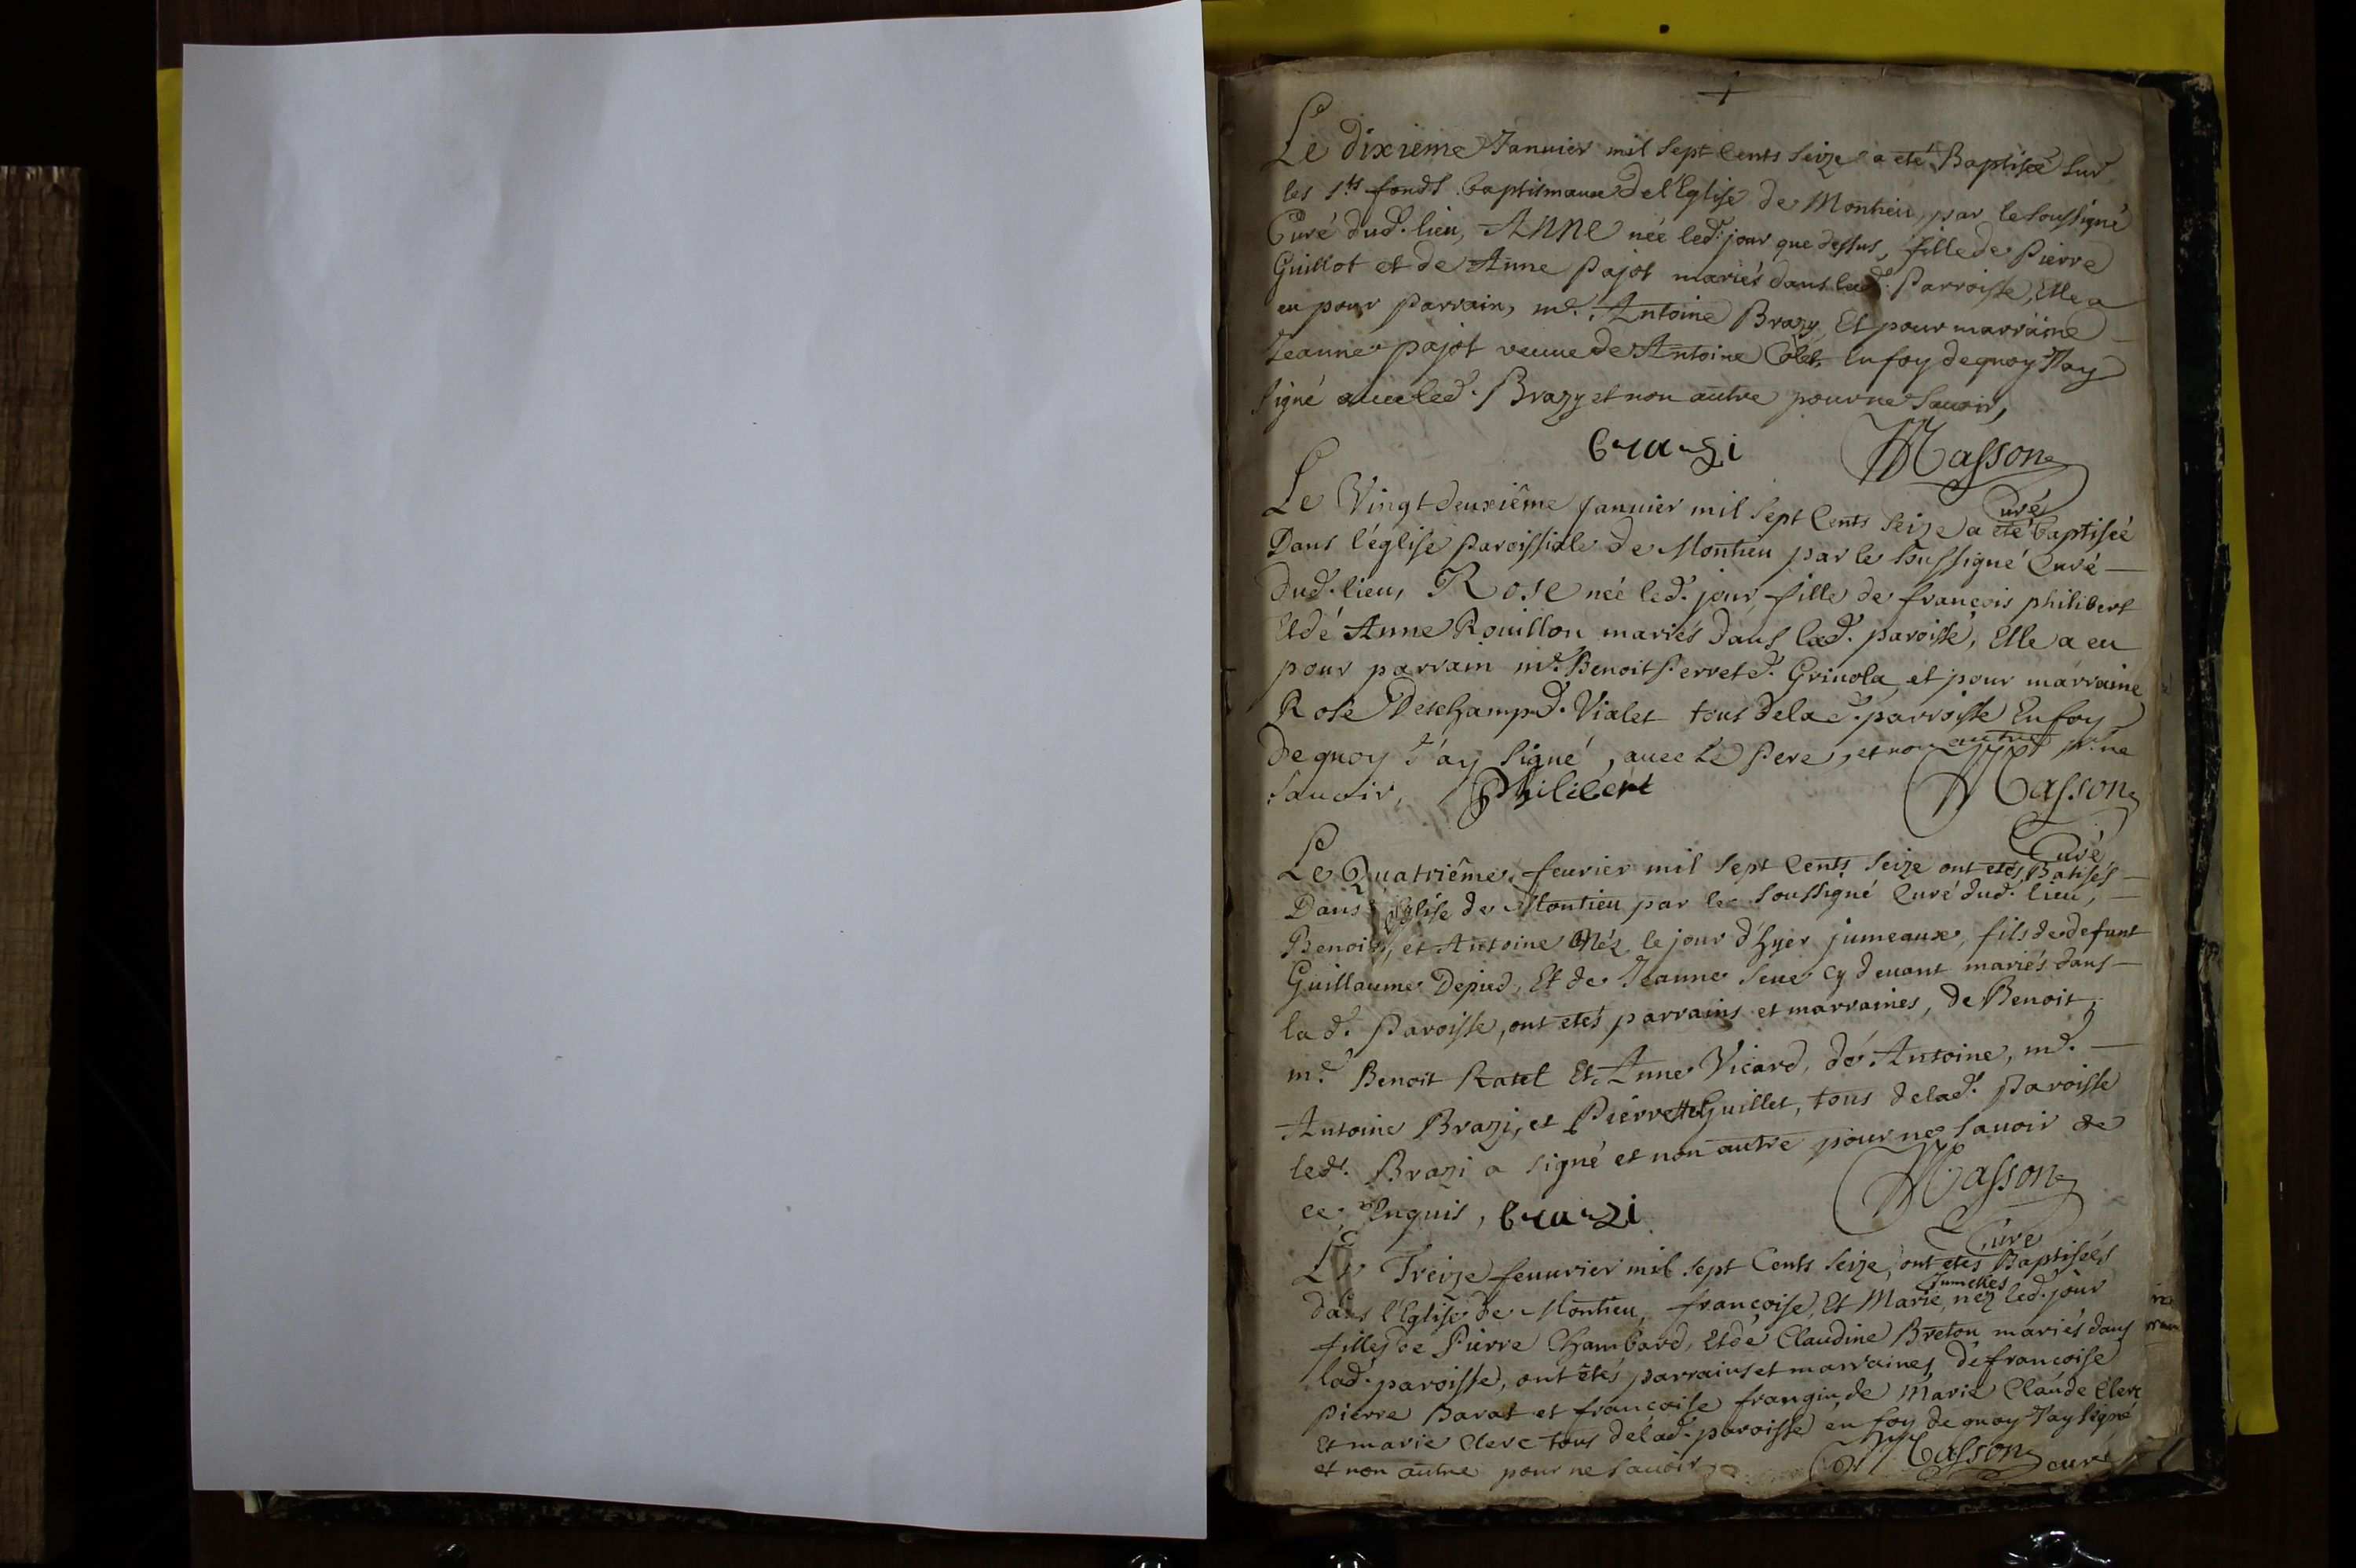 Le dixieme Januier mil sept Cents seize a eté Baptisée sur
les sts fonds baptismaux de l'Eglise de Montieu, par le soussigné
Curé dud. lieu, ANNE née led. jour que dessus, fille de Pierre
Guillot et de Anne Pajot mariés dans lad. Parroisse, Elle a
eu pour Parrain, md. Antoine Brazy, Et pour marraine
Jeanne pajot veuue de Antoine Colet, En foy de quoy J'ay
signé auec led. Brazy et non autre pour ne sauoir,
brazi Masson
Curé
Le Vingt deuxiême januier mil sept Cents seize a eté baptiseé
Dans l'église Paroissiale de Montieu par le soussigné Curé
dud. lieu, Rose née led. jour, fille de françois philibert
Et de Anne Rouillon mariés dans lad. paroisse, Elle a eu
pour parrain md. Benoit Perret d. Grinola, et pour marraine
Rose Deschamp d. Vialet tous de la d. parroisse En foy
de quoy J'ay signé, auec le Pere, et non autre pr. ne
sauoir, Philibert Masson
Curé
Le Quatriême feurier mil sept Cents seize ont etés Batisés
Dans l'Eglise de Montieu par le soussigné Curé dud. lieu,
Benoit, et Antoine Néz le jour d'hyer jumeaux, fils de defunt
Guillaume Depied, Et de Jeanne Seue cy deuant mariés dans
la d. Paroisse, ont etés parrains et marraines, de Benoit,
md. Benoit Ratel Et Anne Vicard, de Antoine, md.
Antoine Brazi, et Pierrette Guillet, tous de lad. Paroisse
led. Brazi a signé et non autre pour ne sauoir de
ce Enquis, brazi Masson
Curé
Le Treize feuurier mil sept Cents seize, ont etés Baptiseés
Jumelles
dans l'Eglise de Montieu, françoise, Et Marie, néz led. jour
filles de Pierre Chambard, Et de Claudine Breton mariés dans
lad. paroisse, ont êtés parrains et marraines de françoise
pierre Barat et françoise frangin, de Marie Claude Clerc
Et marie Clerc tous de lad. paroisse en foy de quoy J'ay signé
et non autre pour ne sauoir Masson curé